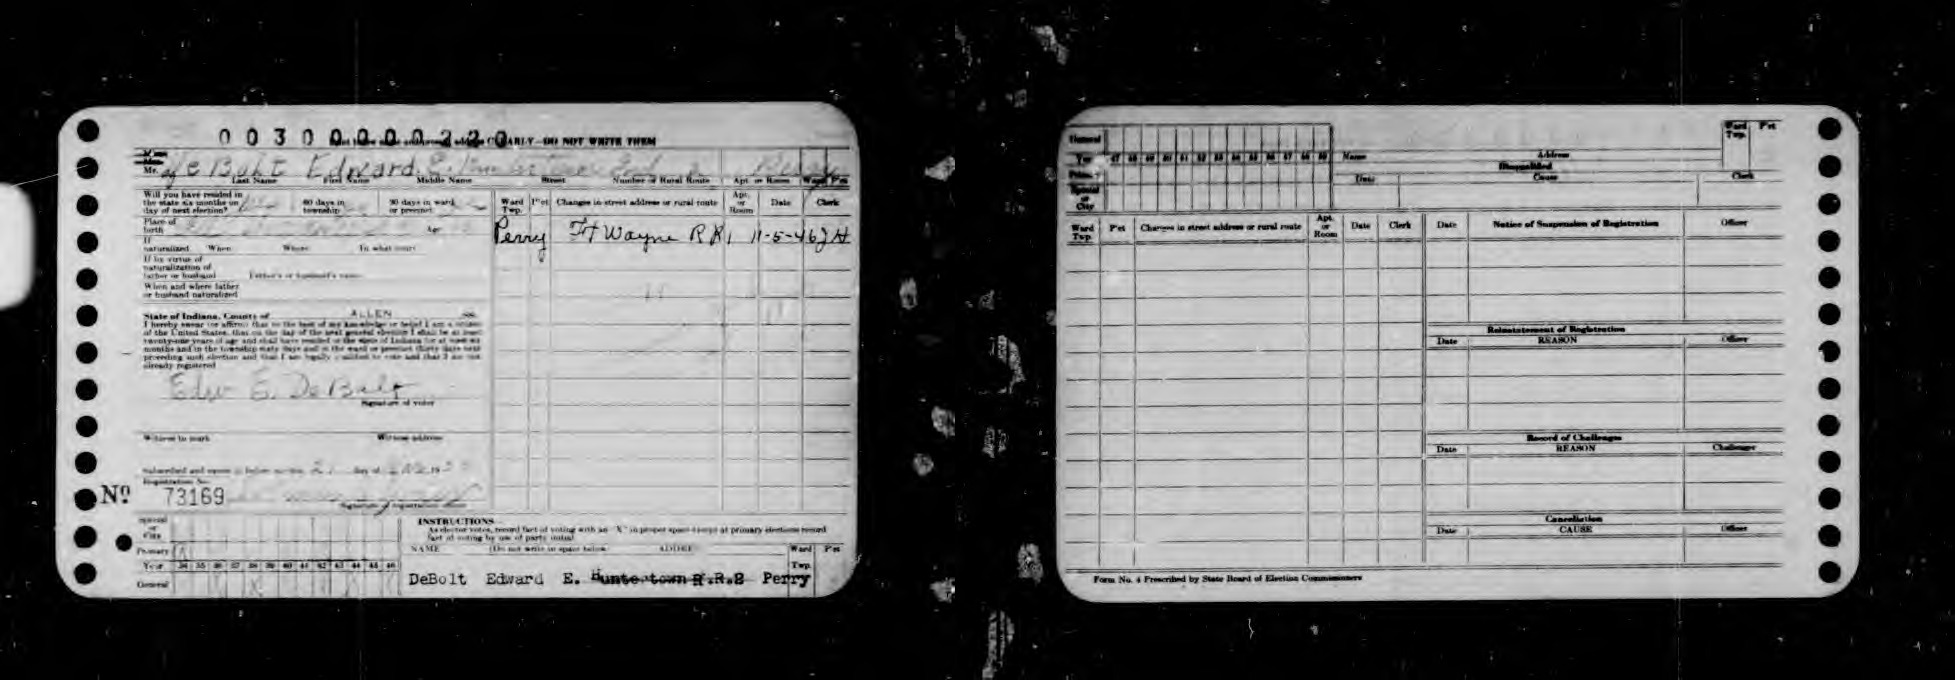 0 0 3 0 0 0 0 0 2 2 0
CLEARLY—DO NOT WRITE THEM
Mr. De Bolt Edward E.
Last Name First Name Middle Name Street Number or Rural Route Apt. or Room Ward Pct
Will you have resided in
the state six months on
day of next election?
60 days in
township
30 days in ward
or precinct
Place of
birth
Age
If
naturalized When Where In what court
If by virtue of
naturalization of
father or husband Father's or husband's name
When and where father
or husband naturalized
State of Indiana, County of ALLEN ss.
I hereby swear (or affirm) that to the best of my knowledge or belief I am a citizen
of the United States, that on the day of the next general election I shall be at least
twenty-one years of age and shall have resided in the state of Indiana for at least six
months and in the township sixty days and in the ward or precinct thirty days next
preceding such election and that I am legally qualified to vote and that I am not
already registered
Edw E. De Bolt
Signature of voter
Witness to mark Witness address
Subscribed and sworn to before me this 21 day of
Registration No.
Nº 73169
Signature of registration officer
Ward Twp. Pct Changes in street address or rural route Apt. or Room Date Clerk
Perry Ft Wayne R R 1 11-5-46 JH
Special
or
City
Primary X
Year 34 35 36 37 38 39 40 41 42 43 44 45 46
General X
INSTRUCTIONS
As elector votes, record fact of voting with an "X" in proper space except at primary elections record
fact of voting by use of party initial
NAME (Do not write in space below ADDRESS Ward Twp. Pct
DeBolt Edward E. Huntertown R.R.2 Perry
General
Year 47 48 49 50 51 52 53 54 55 56 57 58 59
Primary
Special
or
City
Name Address Ward Twp. Pct
Disqualified
Date Cause Clerk
Ward Twp. Pct Changes in street address or rural route Apt. or Room Date Clerk
Date Notice of Suspension of Registration Officer
Reinstatement of Registration
Date REASON Officer
Record of Challenges
Date REASON Challenger
Cancellation
Date CAUSE Officer
Form No. 4 Prescribed by State Board of Election Commissioners